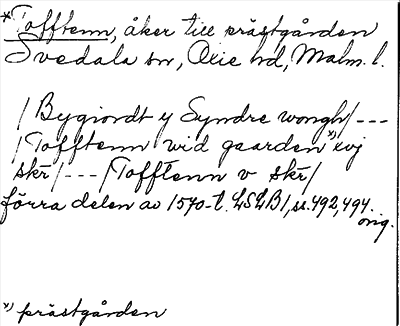 *Tofftenn, åker till prästgården
Svedala sn, Oxie hd, Malm. l.
/Bygiordt y Syndre wongh/---
/Tofftenn wid gaarden *) xvj
skr̄/---/Tofftenn v skr̄/
förra delen av 1570-t. LSLB1, ss. 492, 494.
orig.
*) prästgården